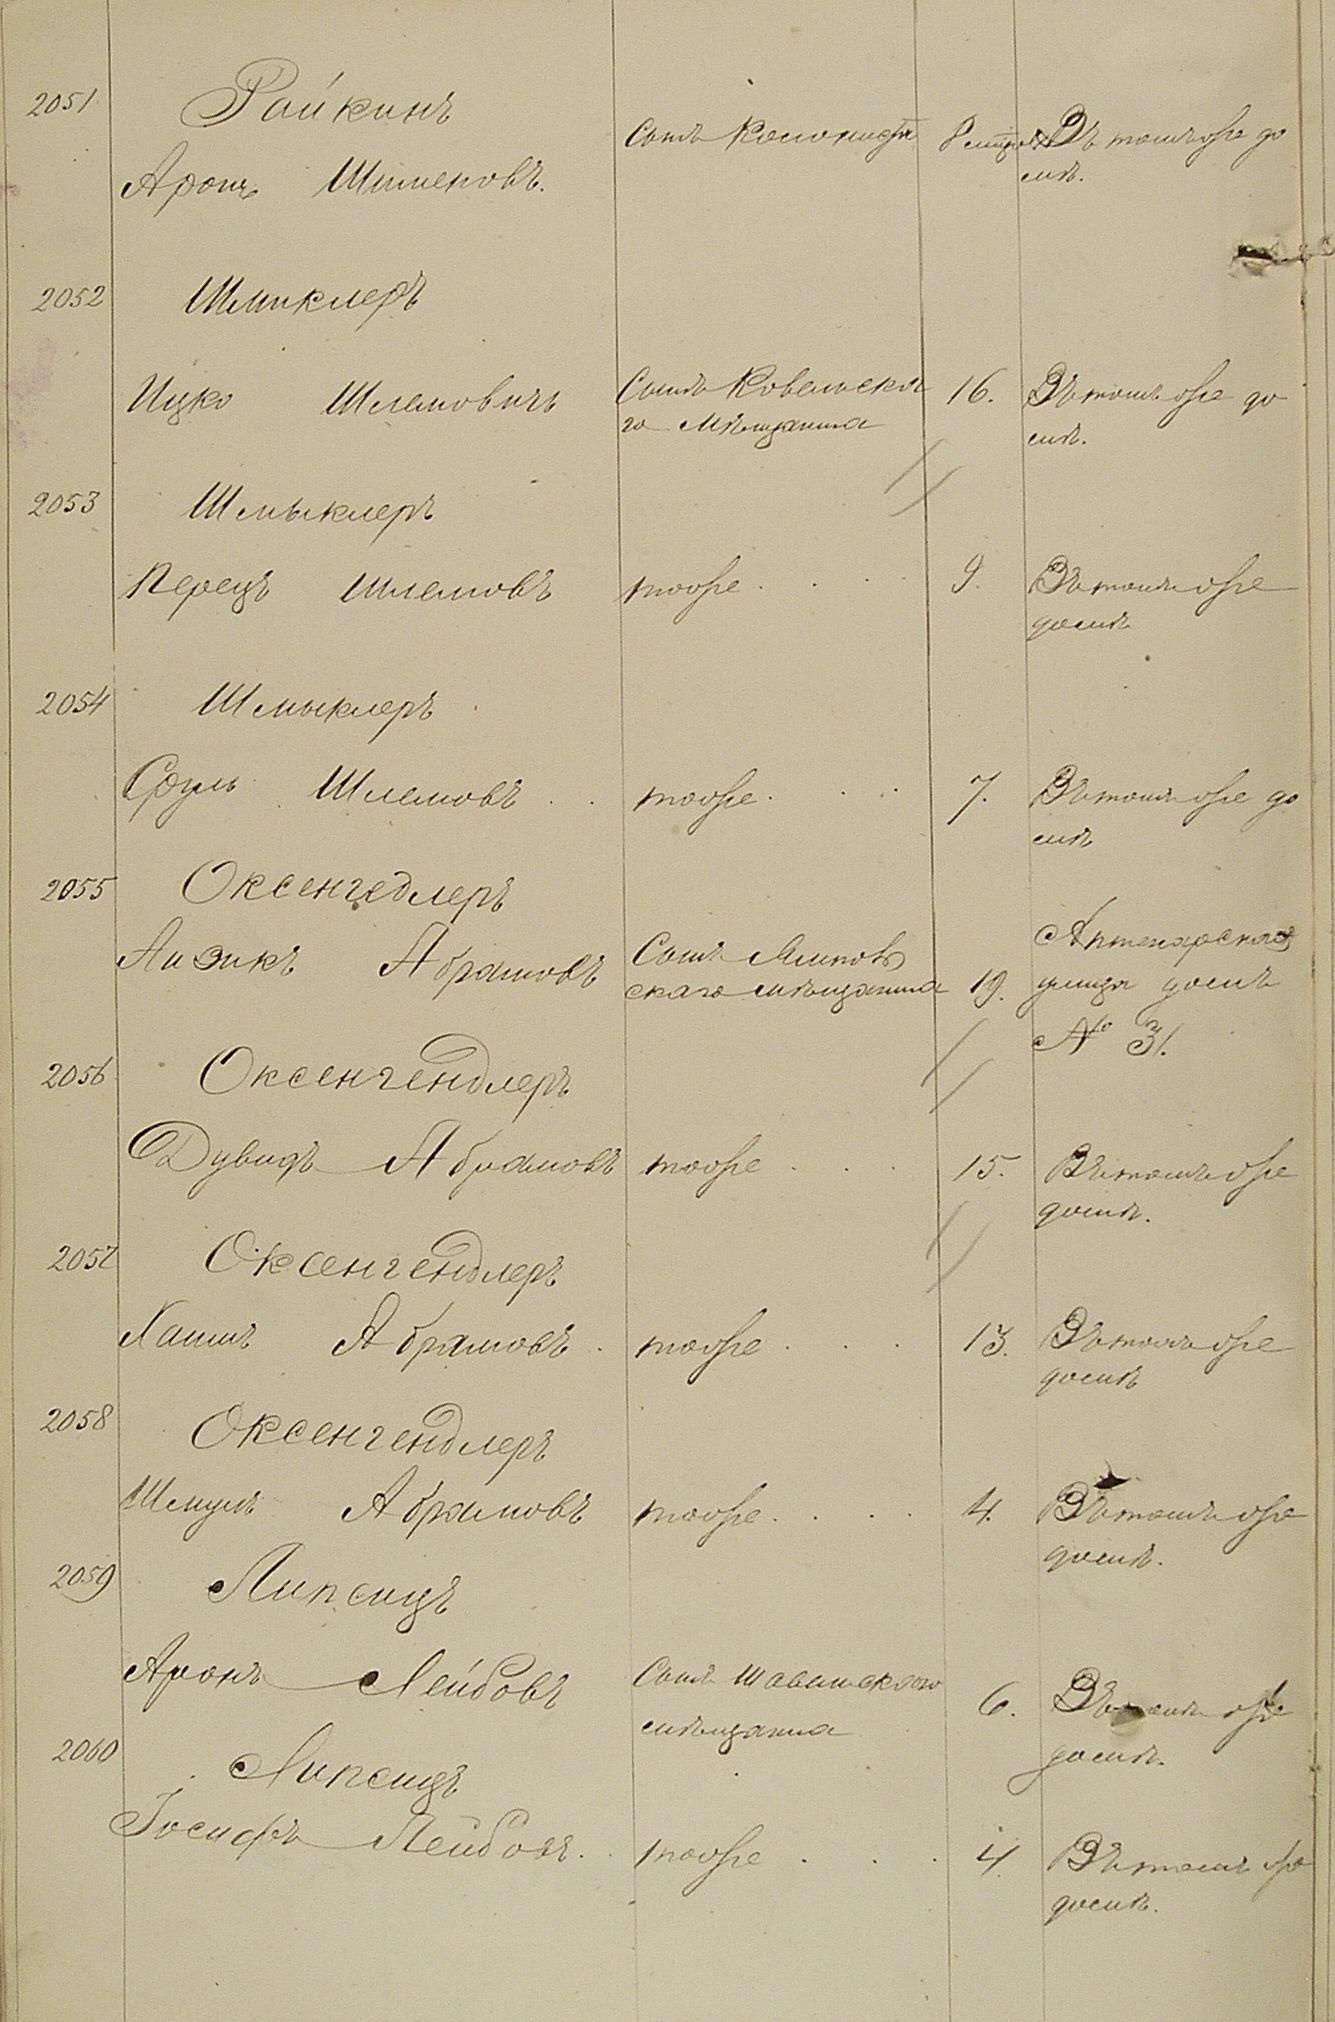 2051 Райкинъ
Сынъ Колониста Въ томъ же до
Аронъ Шименовъ. мѣ.
2052 Шмиклеръ
Ицко Шлемовичъ Сынъ Ковельска 16. Въ томъ же до
го Мѣщанина мѣ.
2053 Шмыклеръ
Перецъ Шлемовъ тоже 9. Въ томъ же
домѣ
2054 Шмыклеръ
Сруль Шлемовъ тоже 7. Въ томъ же до
мѣ
2055 Оксенгедлеръ
Аптекарская
Аизикъ Абрамовъ Сынъ
скаго мѣщанина 19. улица домъ
№ 31.
2056 Оксенгендлеръ
Дувидъ Абрамовъ тоже 15. Въ томъ же
домѣ.
2057 Оксенгендлеръ
Хаимъ Абрамовъ тоже 13. Въ томъ же
домѣ
2058 Оксенгендлеръ
Шмуль Абрамовъ тоже 4. Въ томъ же
домѣ.
2059 Липсицъ
Аронъ Лейбовъ Сынъ Шавельскаго 6. Въ томъ же
мѣщанина домѣ.
2060 Липсицъ
Іосифъ Лейбовъ. тоже 4. Въ томъ же
домѣ.